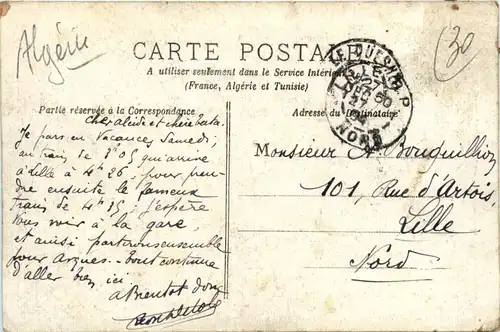 Algérie
30
CARTE POSTALE
A utiliser seulement dans le Service Intérieur
(France, Algérie et Tunisie)
Partie réservée à la Correspondance
Adresse du Destinataire
LE QUESNOY
NORD
Cher Alcide et chère
Je pars en Vacances Samedi,
au train de 3h05 qui arrive
à Lille à 4h26, pour pren-
dre ensuite le fameux
train de 4h35, j'espère
vous voir à la gare,
et ainsi partirons ensemble
pour Arques - tout continue
d'aller bien ici
à Bientôt donc
Monsieur A. Bouquillion
101, Rue d'Artois,
Lille
Nord